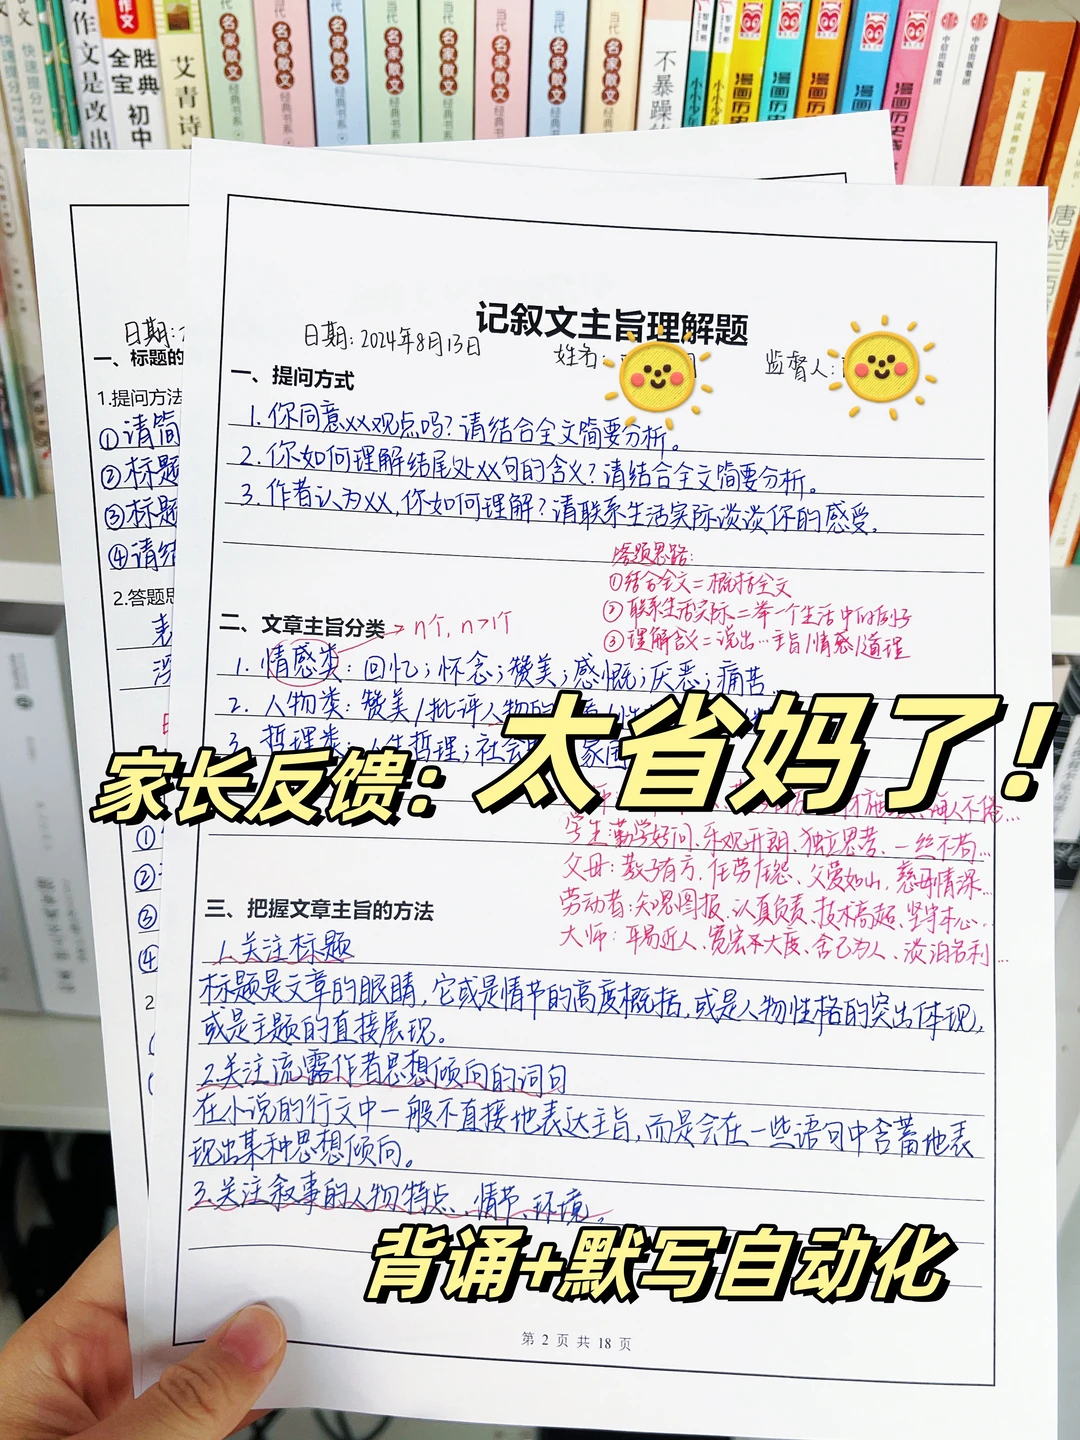 作文是改出
作文
全宝
胜典
初中
艾青诗
当代
名家散文
经典书系
当代
名家散文
经典书系
当代
名家散文
经典书系
当代
名家散文
经典书系
名家散文
经典书系
当代
名家散文
经典书系
当代
名家散文
经典书系
当代
名家散文
经典书系
不暴躁
小小少年
漫画历史
漫画历史
漫画历史
漫画历史
漫画历史
中信出版集团
中信出版集团
语文阅读推荐丛书
唐诗三百
日期:
一、标题的
1.提问方法
①请简
②标题
③标题
④请结
2.答题思
①
②
③
④
2
记叙文主旨理解题
日期: 2024年8月13日
姓名:
监督人:
一、提问方式
1.你同意xx观点吗?请结合全文简要分析。
2.你如何理解结尾处xx句的含义?请结合全文简要分析。
3.作者认为xx,你如何理解?请联系生活实际谈谈你的感受。
答题思路:
①结合全文=概括全文
②联系生活实际=举一个生活中的例子
③理解含义=说出…主旨/情感/道理
二、文章主旨分类→n个,n>1个
1.情感类:回忆;怀念;赞美;感慨;厌恶;痛苦
2.人物类:赞美/批评人物的
3.哲理类:人生哲理;社会
家国
家长反馈:太省妈了!
诲人不倦…
学生:勤学好问、乐观开朗、独立思考、一丝不苟…
父母:教子有方、任劳任怨、父爱如山、慈母情深…
劳动者:知恩图报、认真负责、技术高超、坚守本心…
大师:平易近人、宽宏大度、舍己为人、淡泊名利…
三、把握文章主旨的方法
1.关注标题
标题是文章的眼睛,它或是情节的高度概括,或是人物性格的突出体现,
或是主题的直接展现。
2.关注流露作者思想倾向的词句
在小说的行文中一般不直接地表达主旨,而是会在一些语句中含蓄地表
现出某种思想倾向。
3.关注叙事的人物特点、情节、环境。
背诵+默写自动化
第 2 页 共 18 页